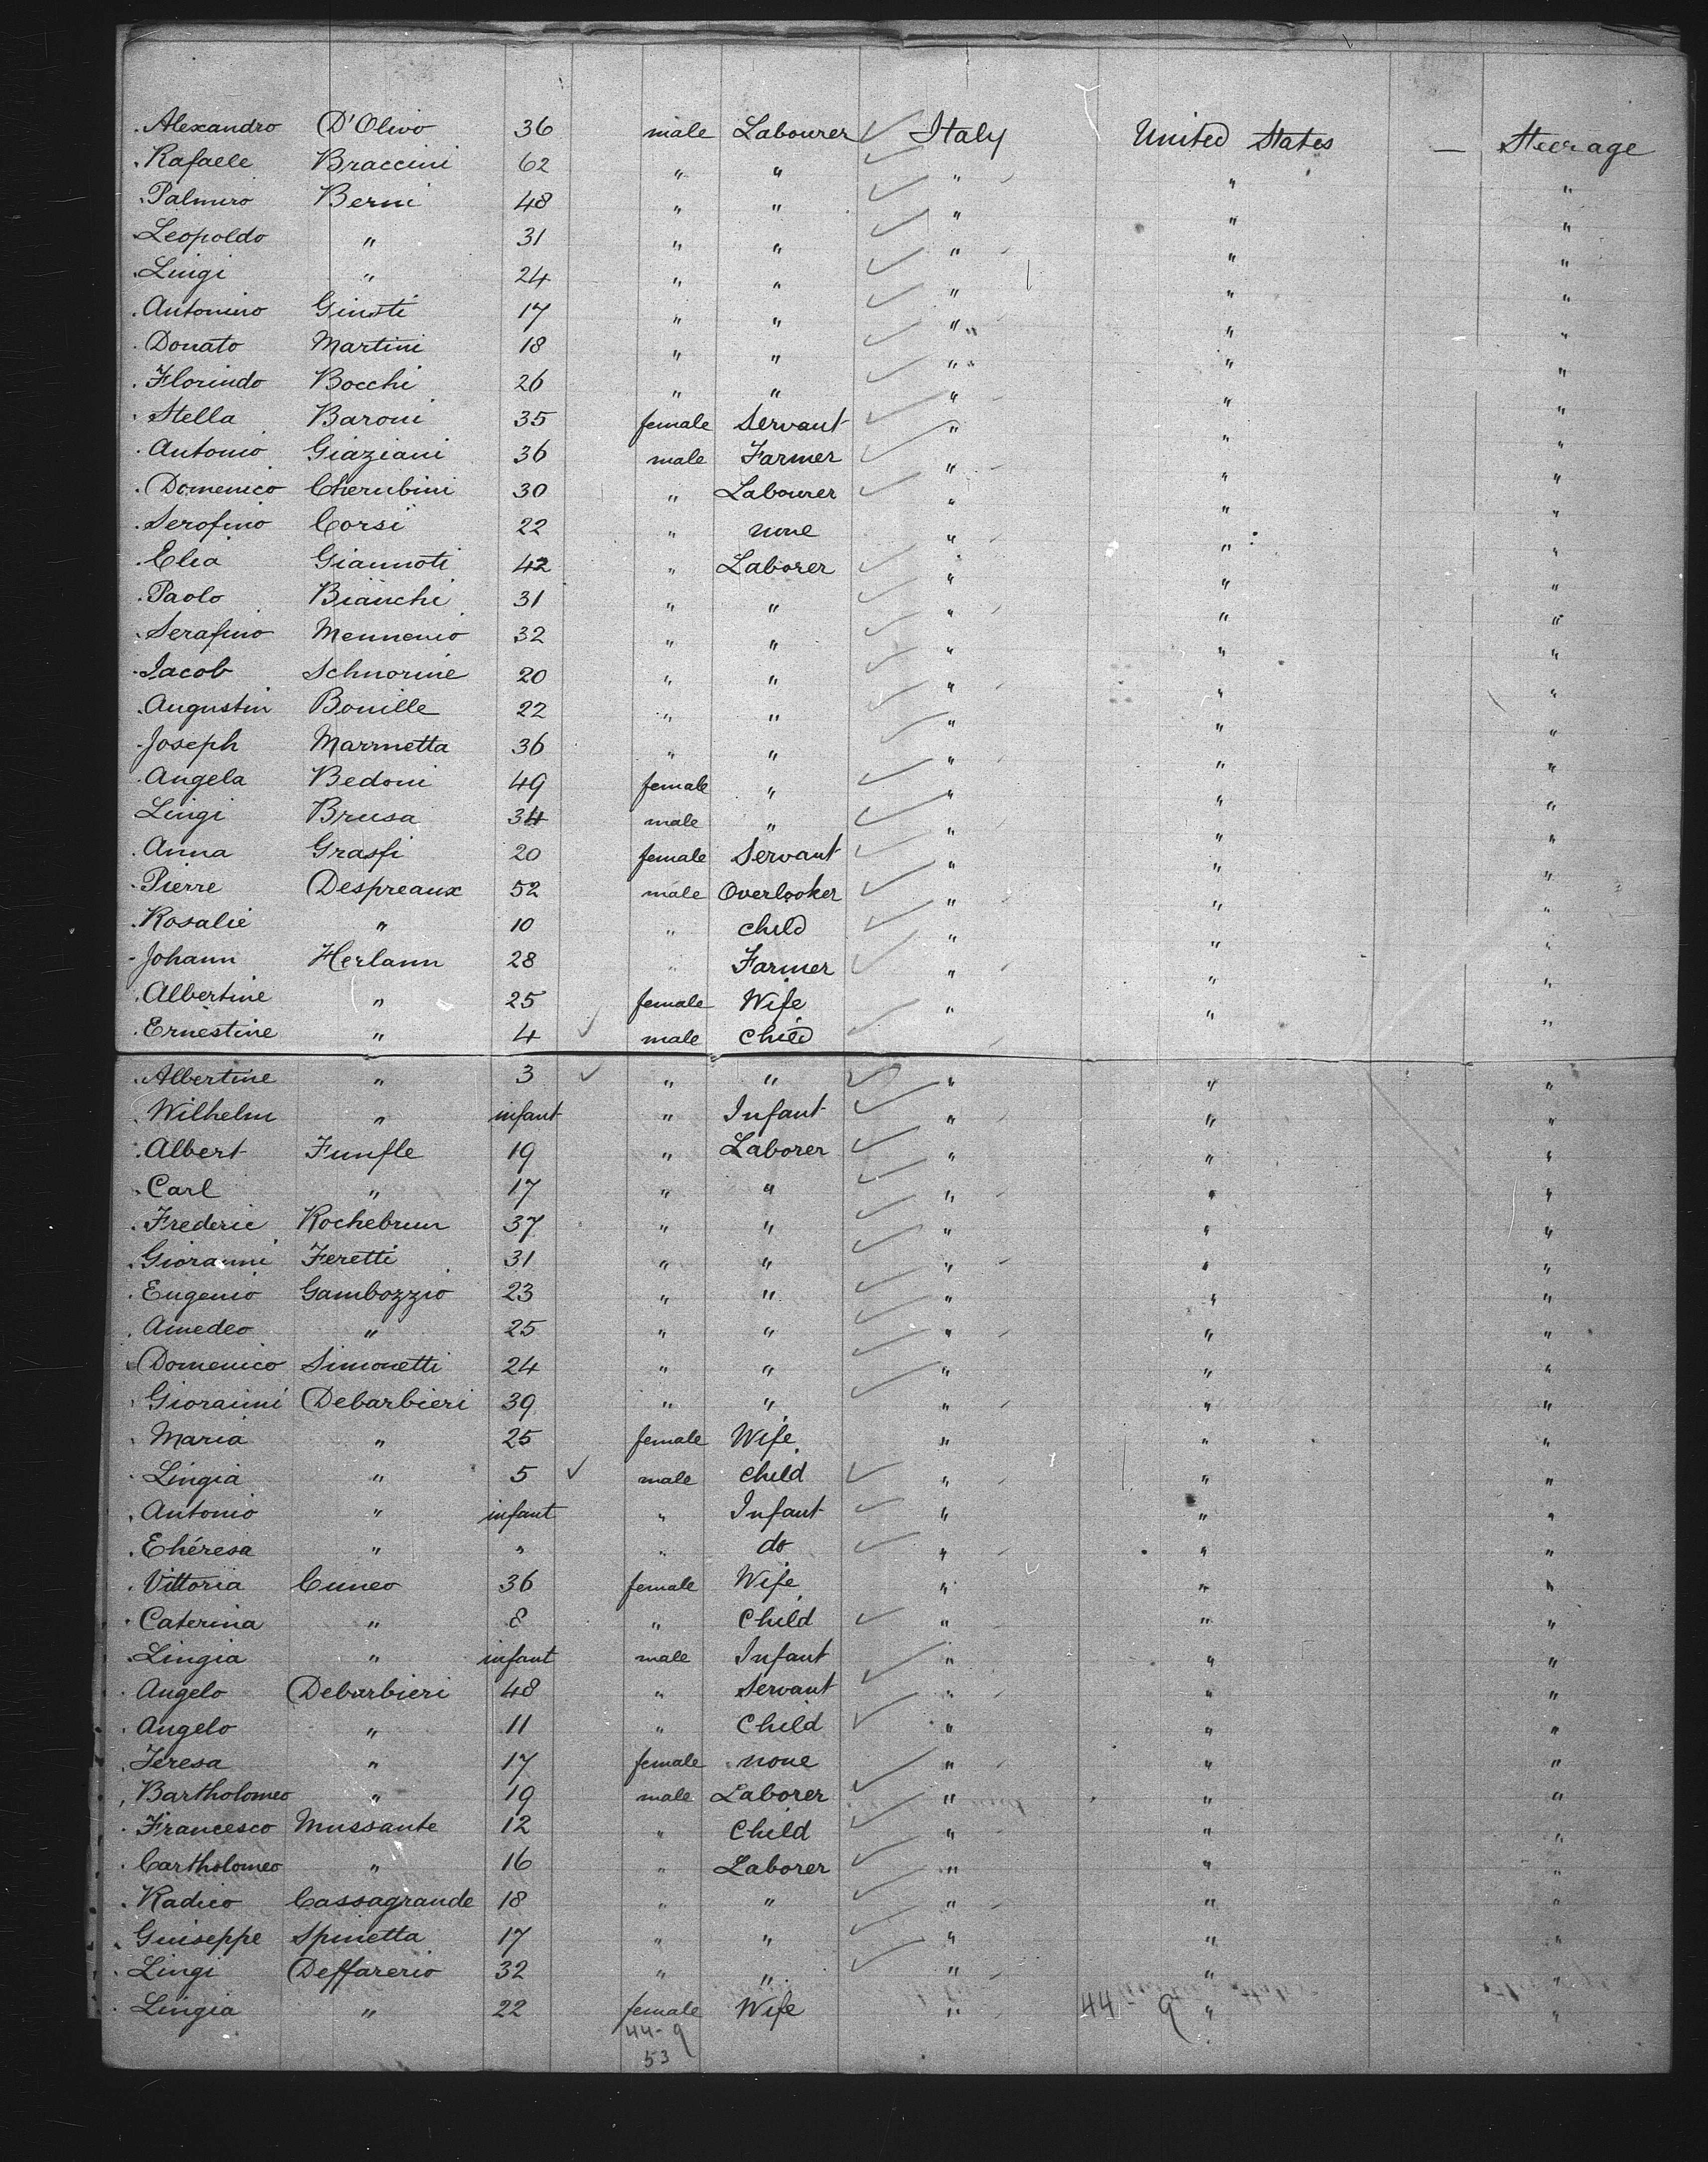 Alexandro D'Olivo 36 male Labourer Italy United States — Steerage
Rafaele Braccini 62 " " " " "
Palmiro Berni 48 " " " " "
Leopoldo " 31 " " " " "
Luigi " 24 " " " " "
Antonino Giusti 17 " " " " "
Donato Martini 18 " " " " "
Florindo Bocchi 26 " " " " "
Stella Baroni 35 female Servant " " "
Antonio Giaziani 36 male Farmer " " "
Domenico Cherubini 30 " Labourer " " "
Serofino Corsi 22 " none " " "
Elia Giannoti 42 " Laborer " " "
Paolo Bianchi 31 " " " " "
Serafino Mennenio 32 " " " " "
Jacob Schnorine 20 " " " " "
Augustin Bouille 22 " " " " "
Joseph Marmetta 36 " " " " "
Angela Bedoni 49 female " " " "
Luigi Brusa 34 male " " " "
Anna Grassi 20 female Servant " " "
Pierre Despreaux 52 male Overlooker " " "
Rosalie " 10 " child " " "
Johann Herlann 28 " Farmer " " "
Albertine " 25 female Wife " " "
Ernestine " 4 male Child
Albertine " 3 " " " " "
Wilhelm " infant " Infant " " "
Albert Funfle 19 " Laborer " " "
Carl " 17 " " " " "
Frederic Rochebrun 37 " " " " "
Gioranni Feretti 31 " " " " "
Eugenio Gambozzio 23 " " " " "
Amedeo " 25 " " " " "
Domenico Simonetti 24 " " " " "
Gioranni Debarbieri 39 " " " " "
Maria " 25 female Wife " " "
Lingia " 5 male Child " " "
Antonio " infant " Infant " " "
Ehéresa " " " do " " "
Vittoria Cuneo 36 female Wife " " "
Caterina " 8 " Child " " "
Lingia " infant male Infant " " "
Angelo Debarbieri 48 " Servant " " "
Angelo " 11 " Child " " "
Teresa " 17 female none " " "
Bartholomeo " 19 male Laborer " " "
Francesco Mussante 12 " Child " " "
Cartholomeo " 16 " Laborer " " "
Radico Cassagrande 18 " " " " "
Guiseppe Spinetta 17 " " " " "
Lingi Deffarerio 32 " " " " "
Lingia " 22 female Wife " 44 - 9 " "
44-9
53